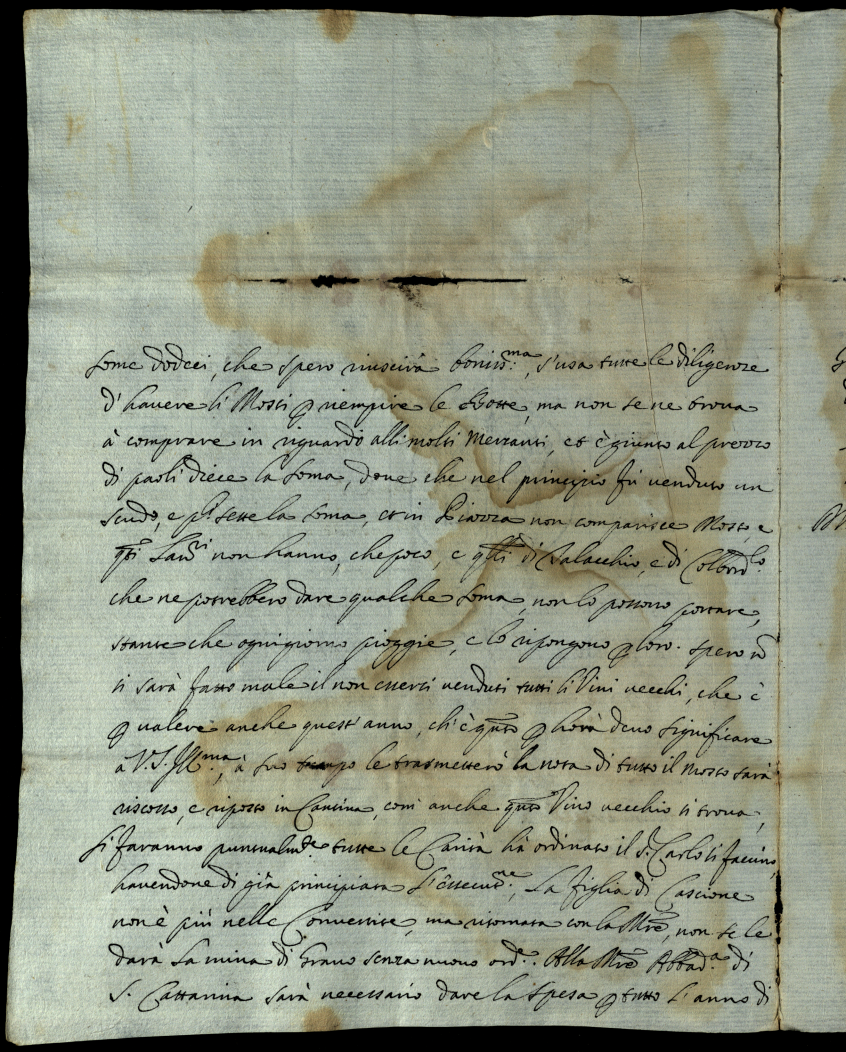 some dodeci, che spero riuscirà boniss:ma, s'usa tutte le diligenze
d'havere li Mosti p riempire le Botte, ma non se ne trova
à comprare in riguardo alli molti Mercanti, et è giunto al prezzo
di paoli diece la soma, dove che nel principio fù venduto un
scudo, e pli sette la soma, et in Piazza non comparisce Mosto, e
qsti Lauri non hanno, che poco, e qlli di Valacchio, e di Colbordlo.
che ne potrebbero dare qualche soma, non lo possono portare,
stante che ogni giorno pioggie, e lo ripongono p loro. Spero nō
si sarà fatto male il non essersi venduti tutti li Vini vecchi, che è
p valere anche quest'anno, ch'è qto p hora devo significare
a V.S. Ill:ma, à suo tempo le trasmetterò la nota di tutto il Mosto sarà
riscosso, e riposto in Cantina, come anche qto Vino vecchio si trova,
si faranno puntualmte tutte le Carità hà ordinato il Sr. Carlo si faccino,
havendone di già principiata l'essecutne:, La figlia di Cascione
non è più nelle Convertite, ma ritornata con la Mre, non se le
darà la mina di Grano senza nuovo ord:e. Alla Mre Abbad:a di
S. Cattarina sarà necessario dare la spesa p tutto l'anno di